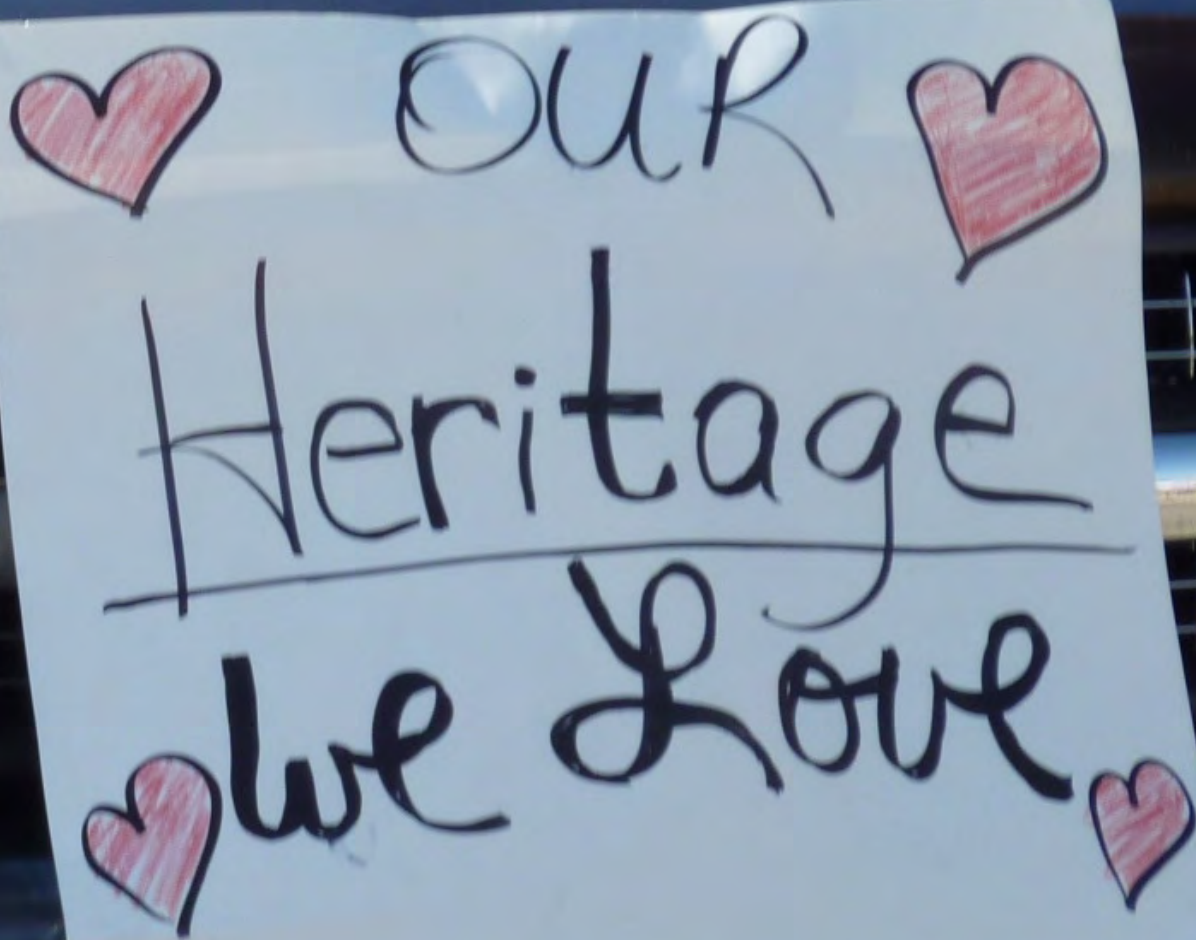 OUR
Heritage
We Love